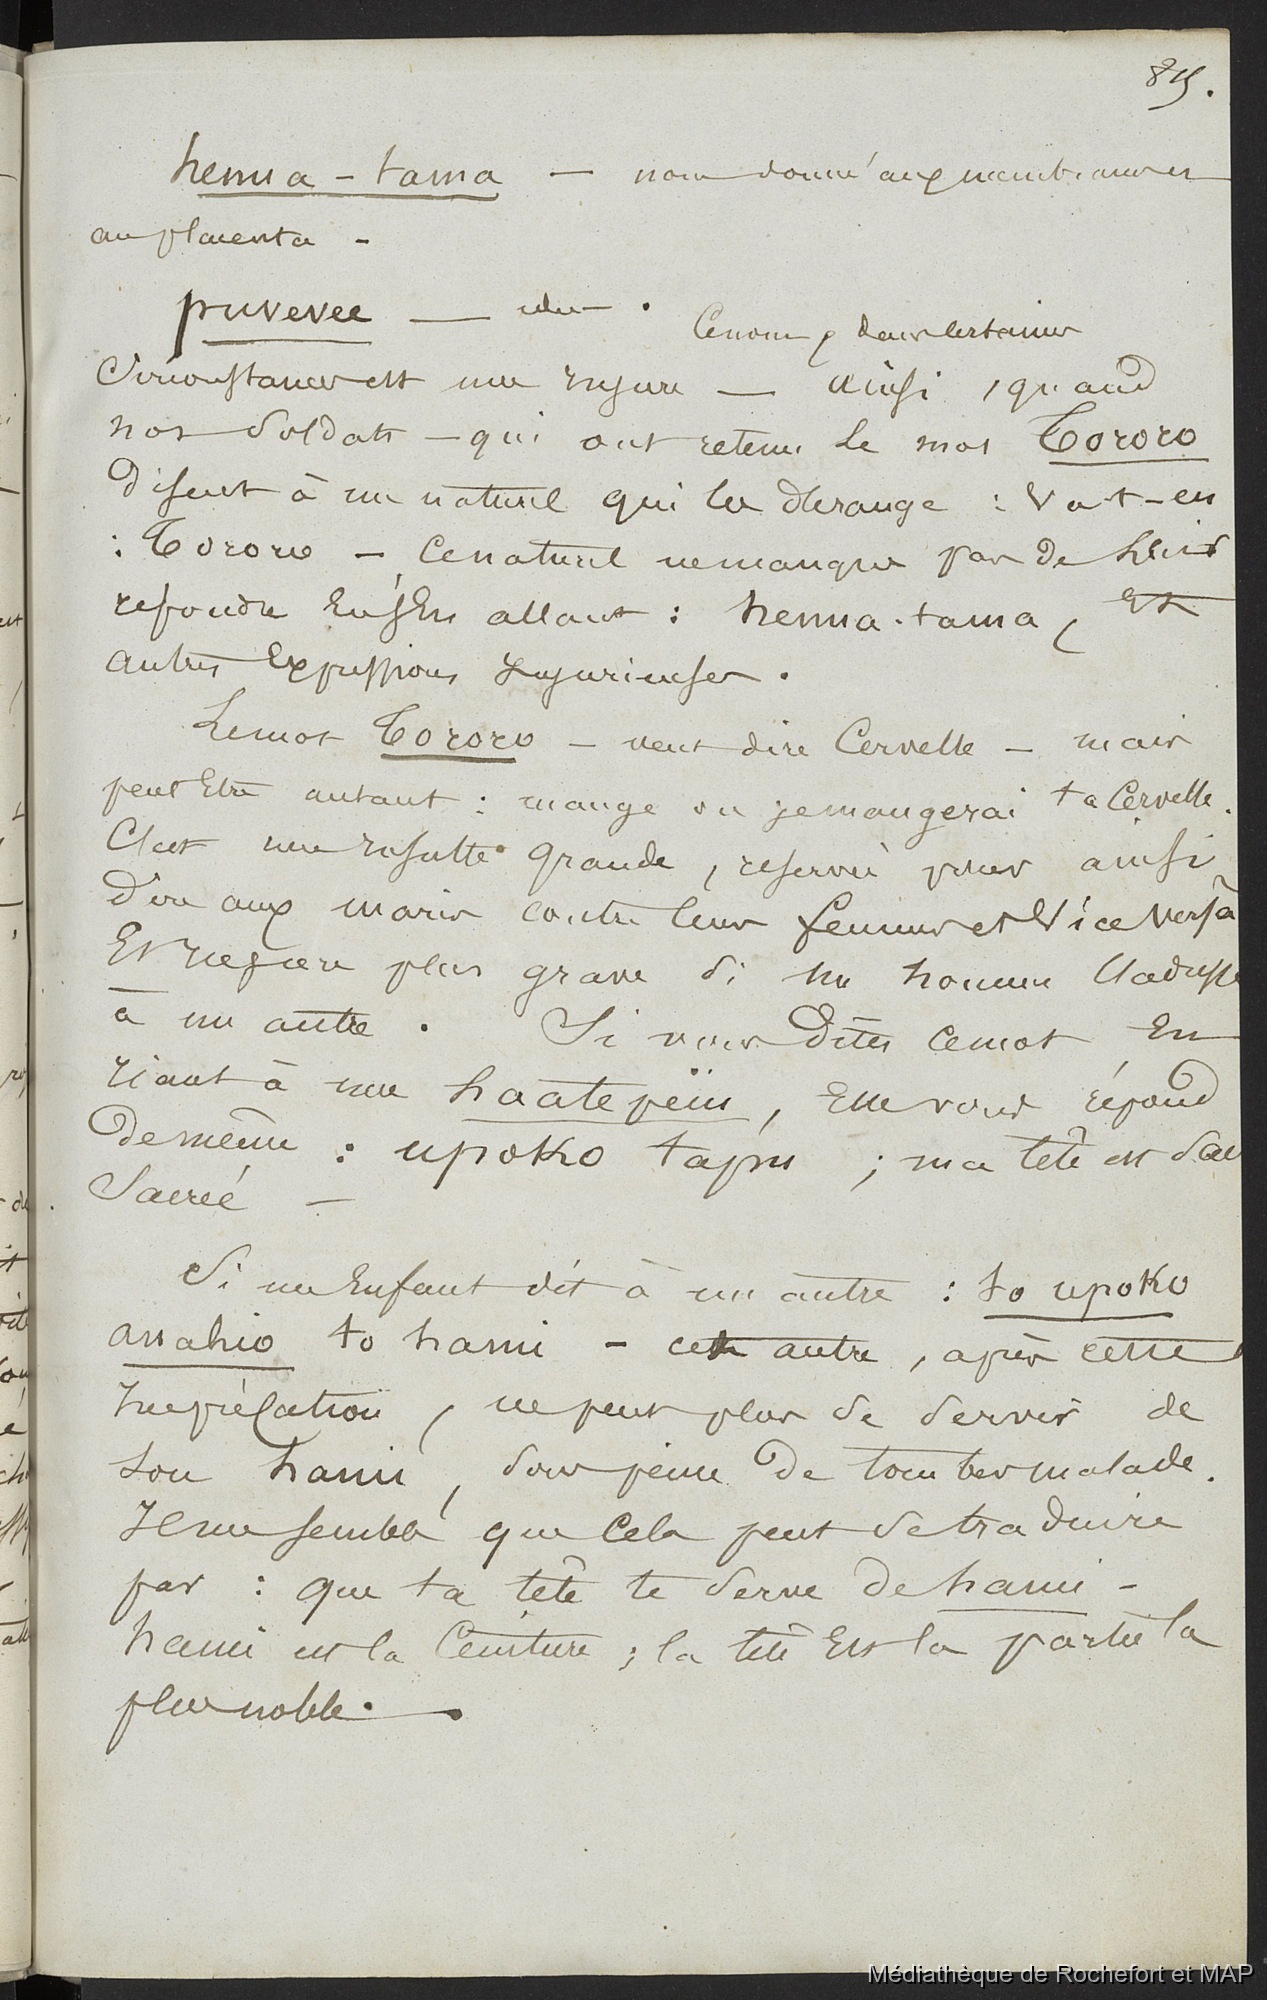 85.
henua-tama — nom donné aux membranes et
au placenta -
puvevee — idem. Ce nom, dans certaines
Circonstances est une injure — ainsi, quand
nos soldats - qui ont retenu le mot Tororo
disent à un naturel qui les dérange : Va-t-en
: Tororo - Ce naturel ne manque pas de leur
répondre en s'en allant : henua-tama, et
autres Expressions injurieuses.
Le mot Tororo - veut dire Cervelle - mais
peut Etre autant : mange ou je mangerai ta Cervelle.
C'est une insulte grande, réservée pour ainsi
dire aux maris contre leurs femmes et Vice Versâ
Et encore plus grave si un homme l'adresse
à un autre. Si vous dites ce mot En
riant à une haatepeiu, Elle vous répond
de même : upoko tapu ; ma tête est
Sacrée —
Si un Enfant dit à un autre : to upoko
to hami - cet autre, après cette
Imprécation, ne peut plus se servir de
son hami, sous peine de tomber malade.
Il me semble que Cela peut se traduire
par : que ta tête te serve de hami -
hami est la Ceinture ; la tête Est la partie la
plus noble. —
Médiathèque de Rochefort et MAP